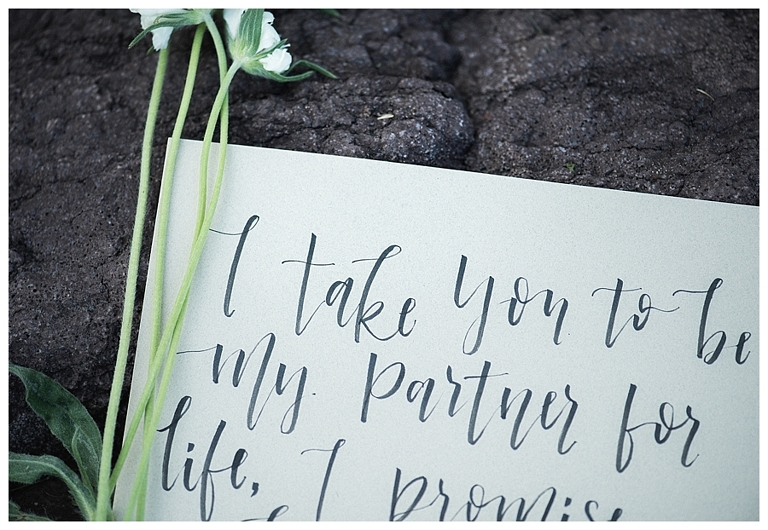 I take you to be
my partner for
life, I promise